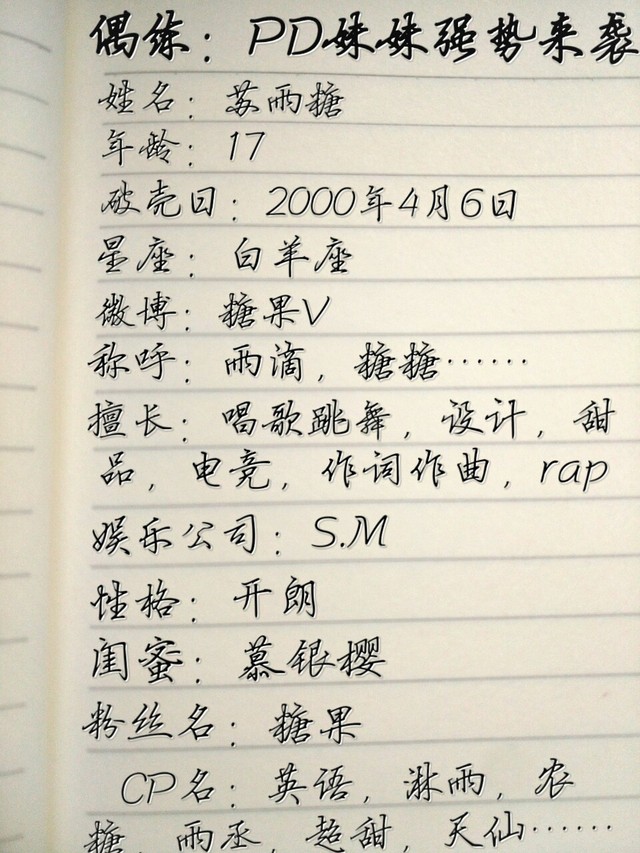 偶练：PD妹妹强势来袭
姓名：苏雨糖
年龄：17
破壳日：2000年4月6日
星座：白羊座
微博：糖果V
称呼：雨滴，糖糖……
擅长：唱歌跳舞，设计，甜
品，电竞，作词作曲，rap
娱乐公司：S.M
性格：开朗
闺蜜：慕银樱
粉丝名：糖果
CP名：英语，淋雨，农
糖，雨丞，超甜，天仙……